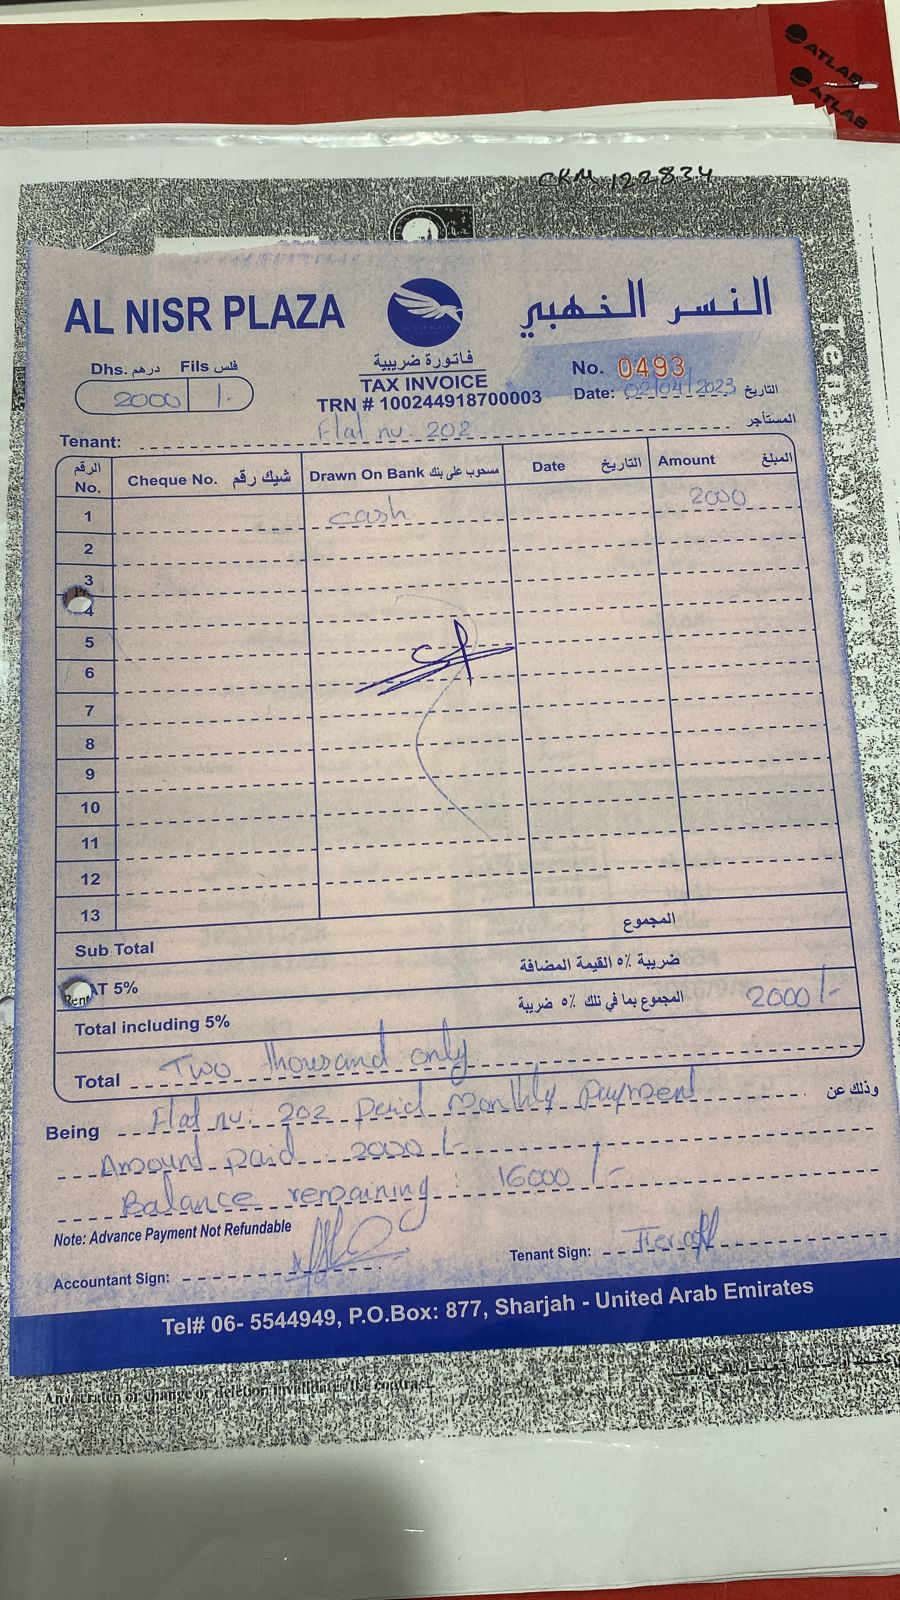 ATLAS
ATLAS
CKM 122834
AL NISR PLAZA
النسر الخهبي
Dhs. درهم Fils فلس
2000 /-
فاتورة ضريبية
TAX INVOICE
TRN # 100244918700003
No. 0493
Date: 02/04/2023 التاريخ
Tenant: Flat no. 202 المستأجر
الرقم No. Cheque No. شيك رقم Drawn On Bank مسحوب على بنك Date التاريخ Amount المبلغ
1 cash 2000
2
3
4
5
6
7
8
9
10
11
12
13
Sub Total المجموع
AT 5% ضريبة ٥٪ القيمة المضافة
Total including 5% المجموع بما في تلك ٥٪ ضريبة 2000/-
Total Two thousand only
Being Flat no: 202 Paid Monthly Payment وذلك عن
Amount paid 2000/-
Balance remaining : 16000/-
Note: Advance Payment Not Refundable
Accountant Sign:
Tenant Sign:
Tel# 06- 5544949, P.O.Box: 877, Sharjah - United Arab Emirates
Any scratch or change or deletion invalidates the contract